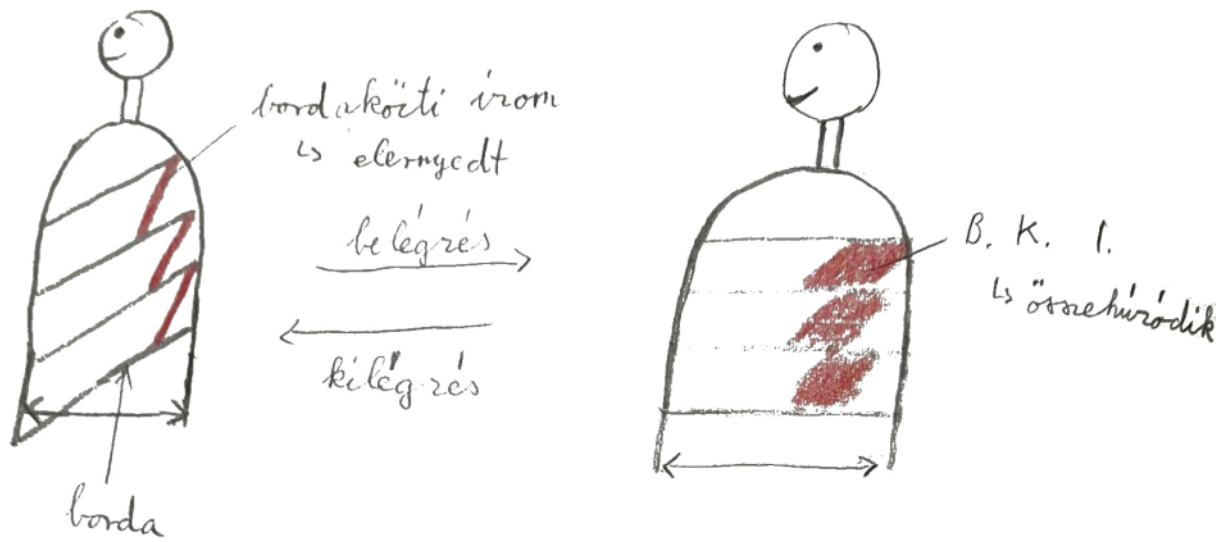 bordaközti izom
↳ elernyedt
belégzés
kilégzés
borda
B. K. I.
↳ összehúzódik